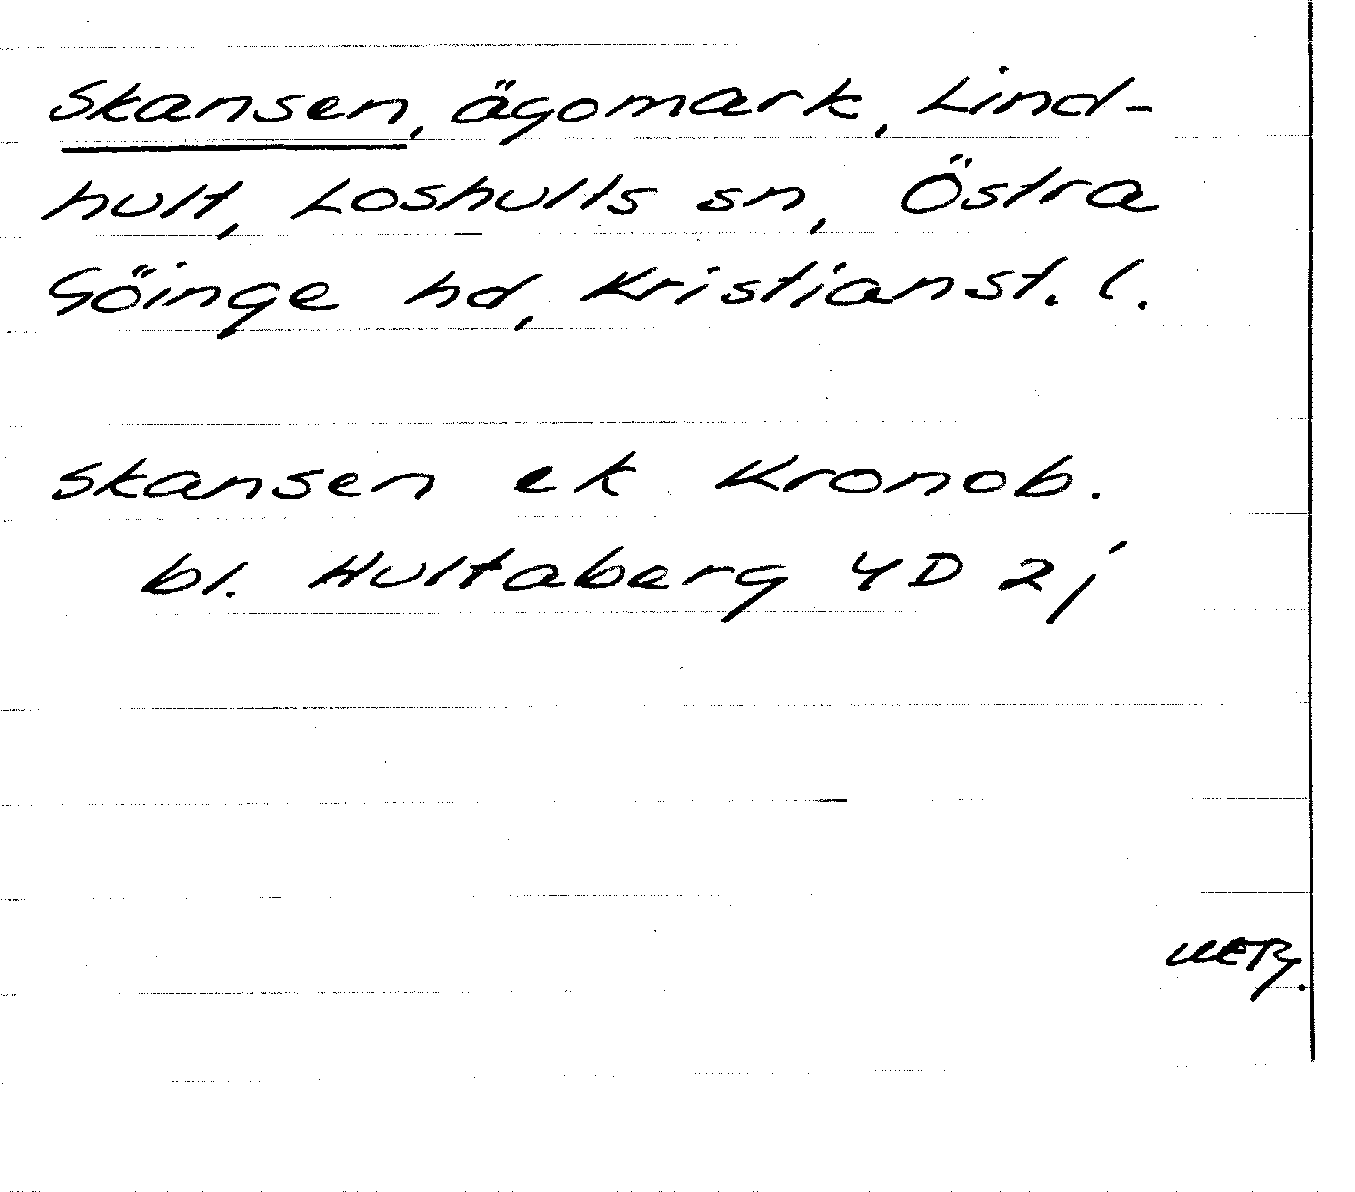 Skansen, ägomark, Lind-
hult, Loshults sn, Östra
Göinge hd, Kristianst. l.
Skansen ek Kronob.
bl. Hultaberg 4D 2j